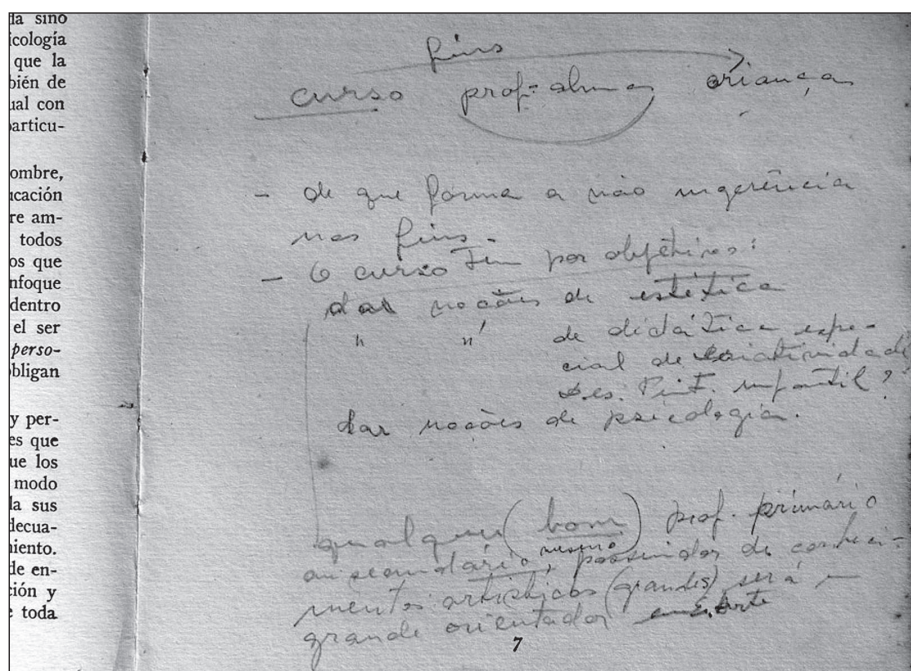 la sino
icología
que la
bién de
ual con
particu-
ombre,
ucación
re am-
todos
os que
nfoque
dentro
el ser
perso-
bligan
y per-
es que
ue los
modo
la sus
decua-
niento.
de en-
ción y
e toda
fins
curso prof-aluno criança
- de que forma a não ingerência
nos fins.
- O curso tem por objetivos:
dar noções de estética
" " de didática espe-
cial de criatividade
Des. Pint. infantil?
dar noções de psicologia.
qualquer (bom) prof. primário
ou secundário, mesmo possuidor de conheci-
mentos artísticos (grandes) será um
grande orientador em arte
7